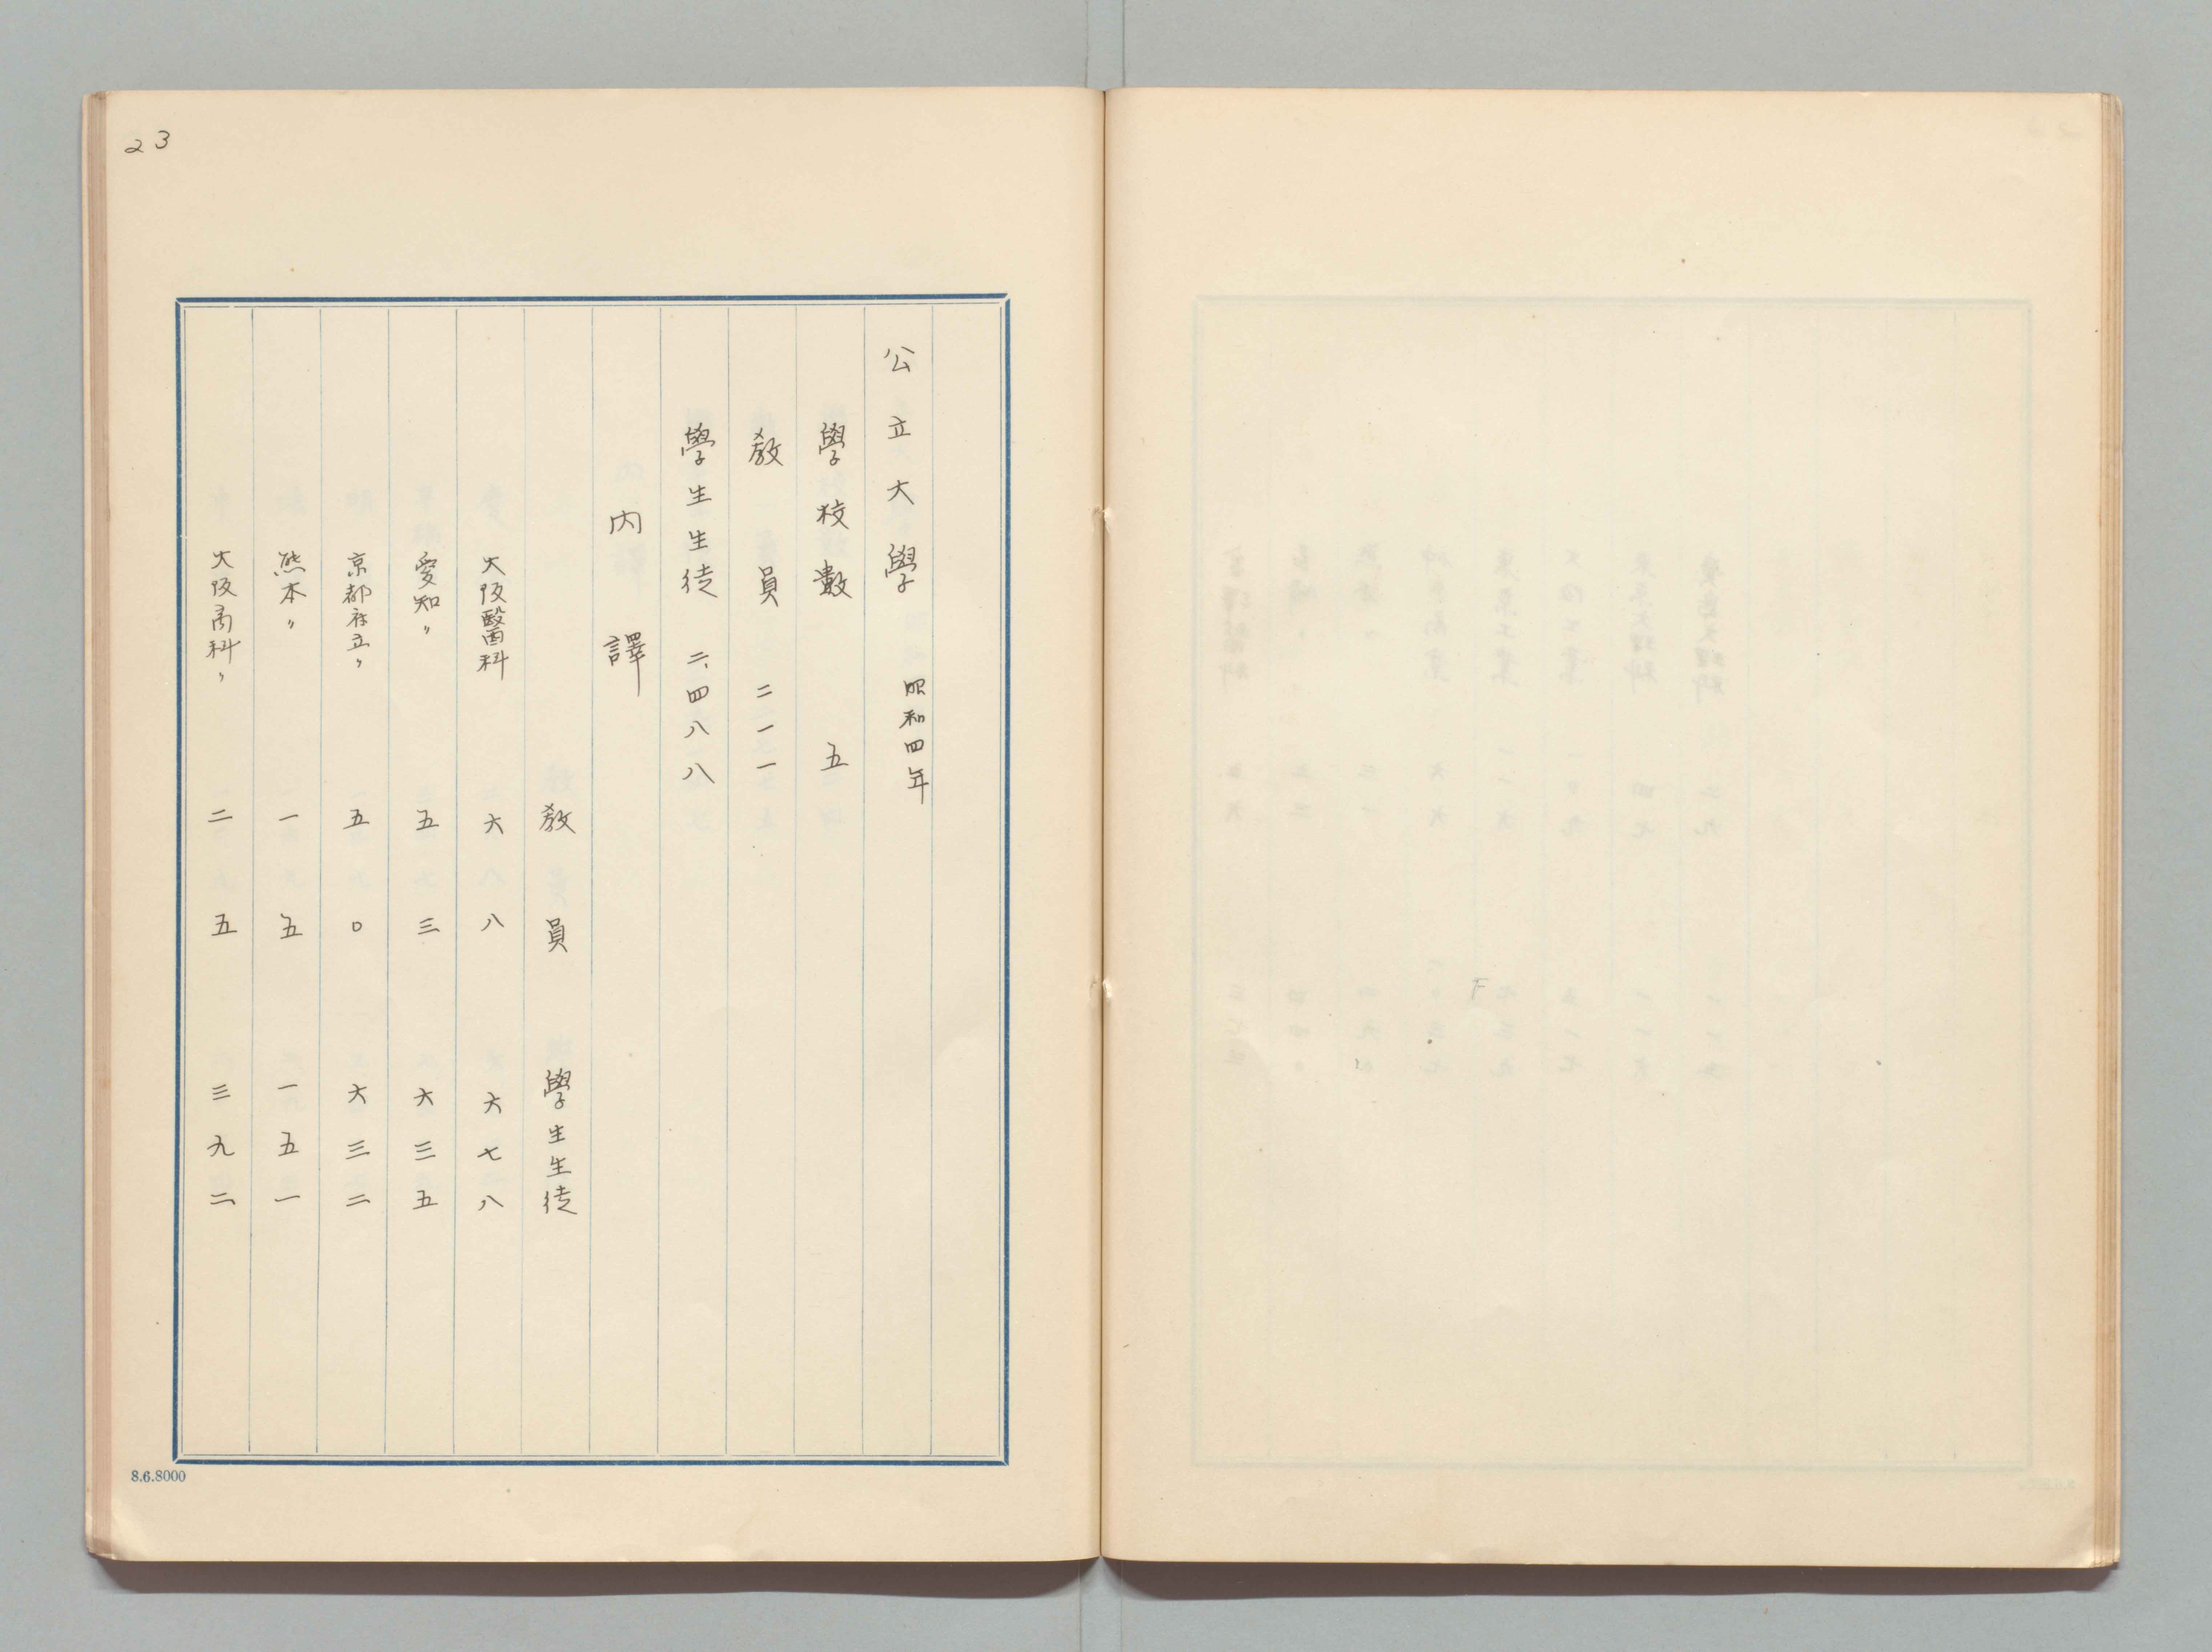 23
公立大學 昭和四年
學校數 五
教員 二一一
學生生徒 二、四八八
內譯
教員 學生生徒
大阪醫科 六八 六七八
愛知〃 五三 六三五
京都府立〃 五〇 六三二
熊本〃 一五 一五一
大阪商科〃 二五 三九二
8.6.8000